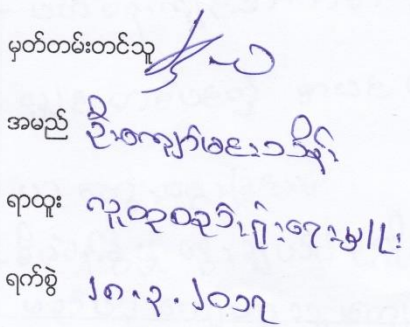 မှတ်တမ်းတင်သူ
အမည် ဦးကျော်မင်းသိန်း
ရာထူး လူထုစည်းရုံးရေးမှူး
ရက်စွဲ ၂၈.၃.၂၀၁၇